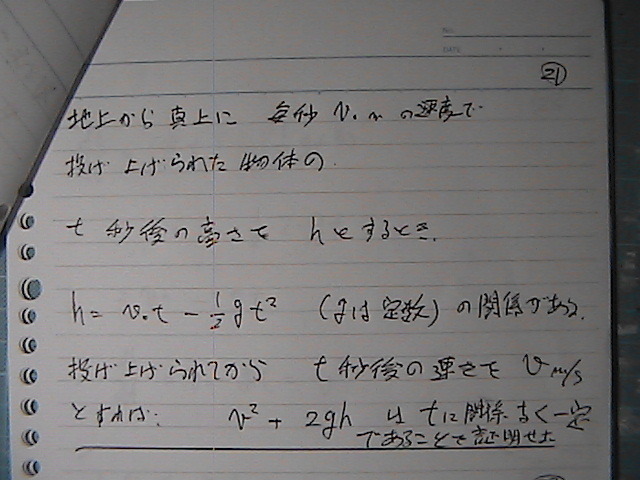 No.
DATE
㉑
地上から真上に 毎秒 v₀ m の速度で
投げ上げられた物体の
t 秒後の高さを hとするとき.
h = v₀t - 1/2 g t² (gは定数) の関係がある.
投げ上げられてから t秒後の速さを v m/s
とすれば: v² + 2gh は tに関係なく一定
であることを証明せよ